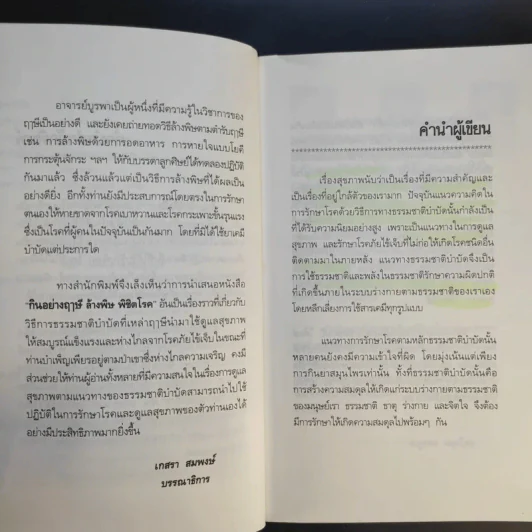 อาจารย์บูรพาเป็นผู้หนึ่งที่มีความรู้ในวิชาการของ
ฤๅษีเป็นอย่างดี และยังเคยถ่ายทอดวิธีล้างพิษตามตำรับฤๅษี
เช่น การล้างพิษด้วยการอดอาหาร การหายใจแบบโยคี
การกระตุ้นจักระ ฯลฯ ให้กับบรรดาลูกศิษย์ได้ทดลองปฏิบัติ
กันมาแล้ว ซึ่งล้วนแล้วแต่เป็นวิธีล้างพิษที่ได้ผลเป็น
อย่างดียิ่ง อีกทั้งท่านยังมีประสบการณ์โดยตรงในการรักษา
ตนเองให้หายขาดจากโรคเบาหวานและโรคกระเพาะขั้นรุนแรง
ซึ่งเป็นโรคที่ผู้คนในปัจจุบันเป็นกันมาก โดยที่มิได้ใช้ยาเคมี
บำบัดแต่ประการใด
ทางสำนักพิมพ์จึงเล็งเห็นว่าการนำเสนอหนังสือ
"กินอย่างฤๅษี ล้างพิษ พิชิตโรค" อันเป็นเรื่องราวที่เกี่ยวกับ
วิธีการธรรมชาติบำบัดที่เหล่าฤๅษีนำมาใช้ดูแลสุขภาพ
ให้สมบูรณ์แข็งแรงและห่างไกลจากโรคภัยไข้เจ็บในขณะที่
ท่านบำเพ็ญเพียรอยู่ตามป่าเขาซึ่งห่างไกลความเจริญ คงมี
ส่วนช่วยให้ท่านผู้อ่านทั้งหลายที่มีความสนใจในเรื่องการดูแล
สุขภาพตามแนวทางของธรรมชาติบำบัดสามารถนำไปใช้
ปฏิบัติในการรักษาโรคและดูแลสุขภาพของตัวท่านเองได้
อย่างมีประสิทธิภาพมากยิ่งขึ้น
เกสรา สมพงษ์
บรรณาธิการ
คำนำผู้เขียน
เรื่องสุขภาพนับว่าเป็นเรื่องที่มีความสำคัญและ
เป็นเรื่องที่อยู่ใกล้ตัวของเรามาก ปัจจุบันแนวความคิดใน
การรักษาโรคด้วยวิธีการทางธรรมชาติบำบัดนั้นกำลังเป็น
ที่ได้รับความนิยมอย่างสูง เพราะเป็นแนวทางในการดูแล
สุขภาพ และรักษาโรคภัยไข้เจ็บที่ไม่ก่อให้เกิดโรคชนิดอื่น
ติดตามมาในภายหลัง แนวทางธรรมชาติบำบัดจึงเป็น
การใช้ธรรมชาติและพลังในธรรมชาติรักษาความผิดปกติ
ที่เกิดขึ้นภายในระบบร่างกายตามธรรมชาติของเราเอง
โดยหลีกเลี่ยงการใช้สารเคมีทุกรูปแบบ
แนวทางการรักษาโรคตามหลักธรรมชาติบำบัดนั้น
หลายคนยังคงมีความเข้าใจที่ผิด โดยมุ่งเน้นแต่เพียง
การกินยาสมุนไพรเท่านั้น ทั้งที่ธรรมชาติบำบัดนั้นคือ
การสร้างความสมดุลให้เกิดแก่ระบบร่างกายตามธรรมชาติ
ของมนุษย์เรา ธรรมชาติ ธาตุ ร่างกาย และจิตใจ จึงต้อง
มีการรักษาให้เกิดความสมดุลไปพร้อมๆ กัน